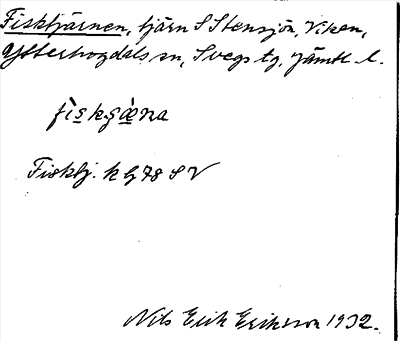 Fisktjärnen, tjärn S Stensjön, Viken,
Ytterhogdals sn, Svegs tg, Jämtl. l.
fìskɕæ̀na
Fisktj. k G 78 S V
Nils Erik Eriksson 1932.